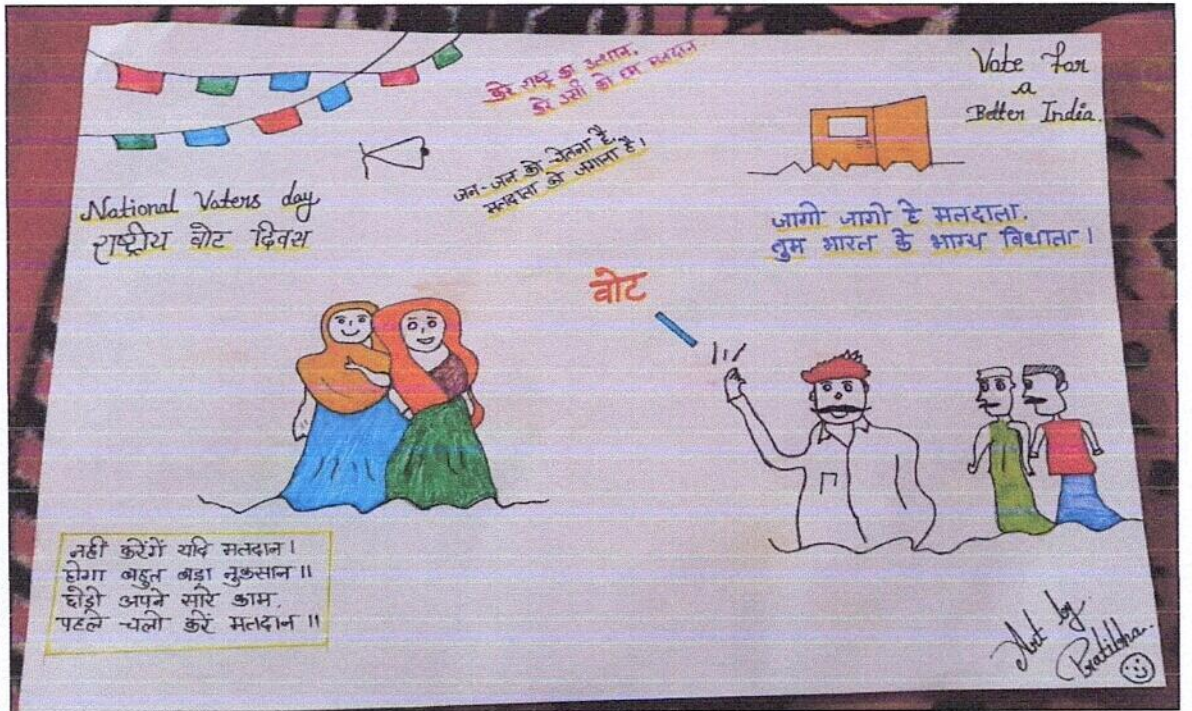 करे राष्ट्र का उत्थान,
करे उसी को हम मतदान
Vote for
a
Better India.
जन-जन की चेतना है,
मतदाता को जगाना है।
National Voters day
राष्ट्रीय वोट दिवस
जागो जागो हे मतदाता,
तुम भारत के भाग्य विधाता।
वोट
नही करेंगें यदि मतदान।
होगा बहुत बड़ा नुकसान॥
छोड़ो अपने सारे काम,
पहले चलो करें मतदान॥
Art by
Pratibha..